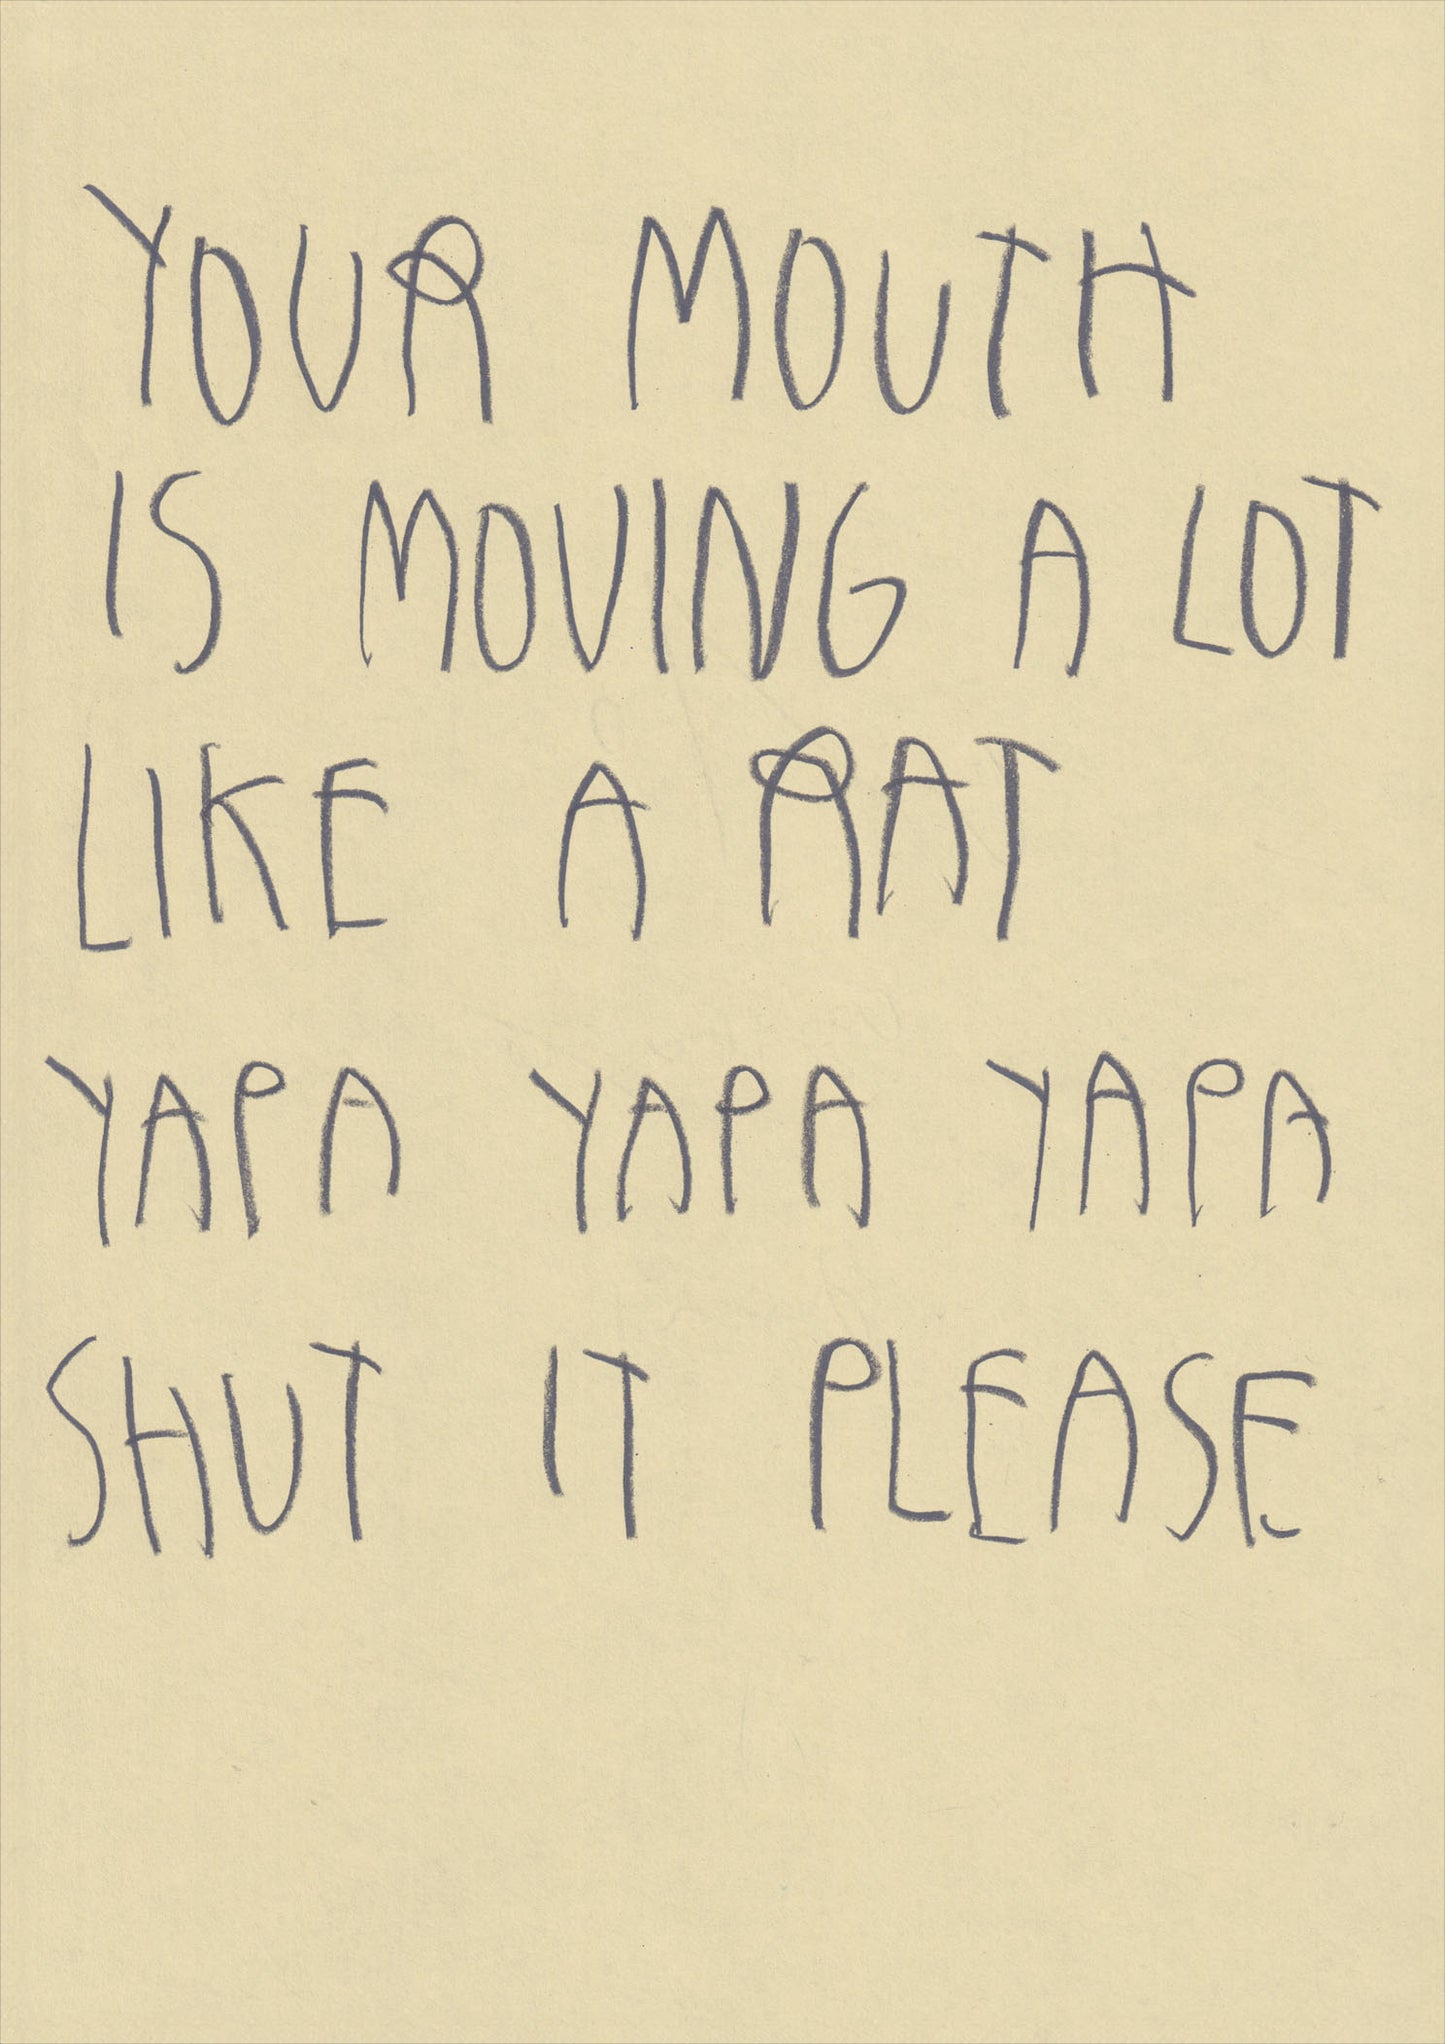 YOUR MOUTH
IS MOVING A LOT
LIKE A RAT
YAPA YAPA YAPA
SHUT IT PLEASE